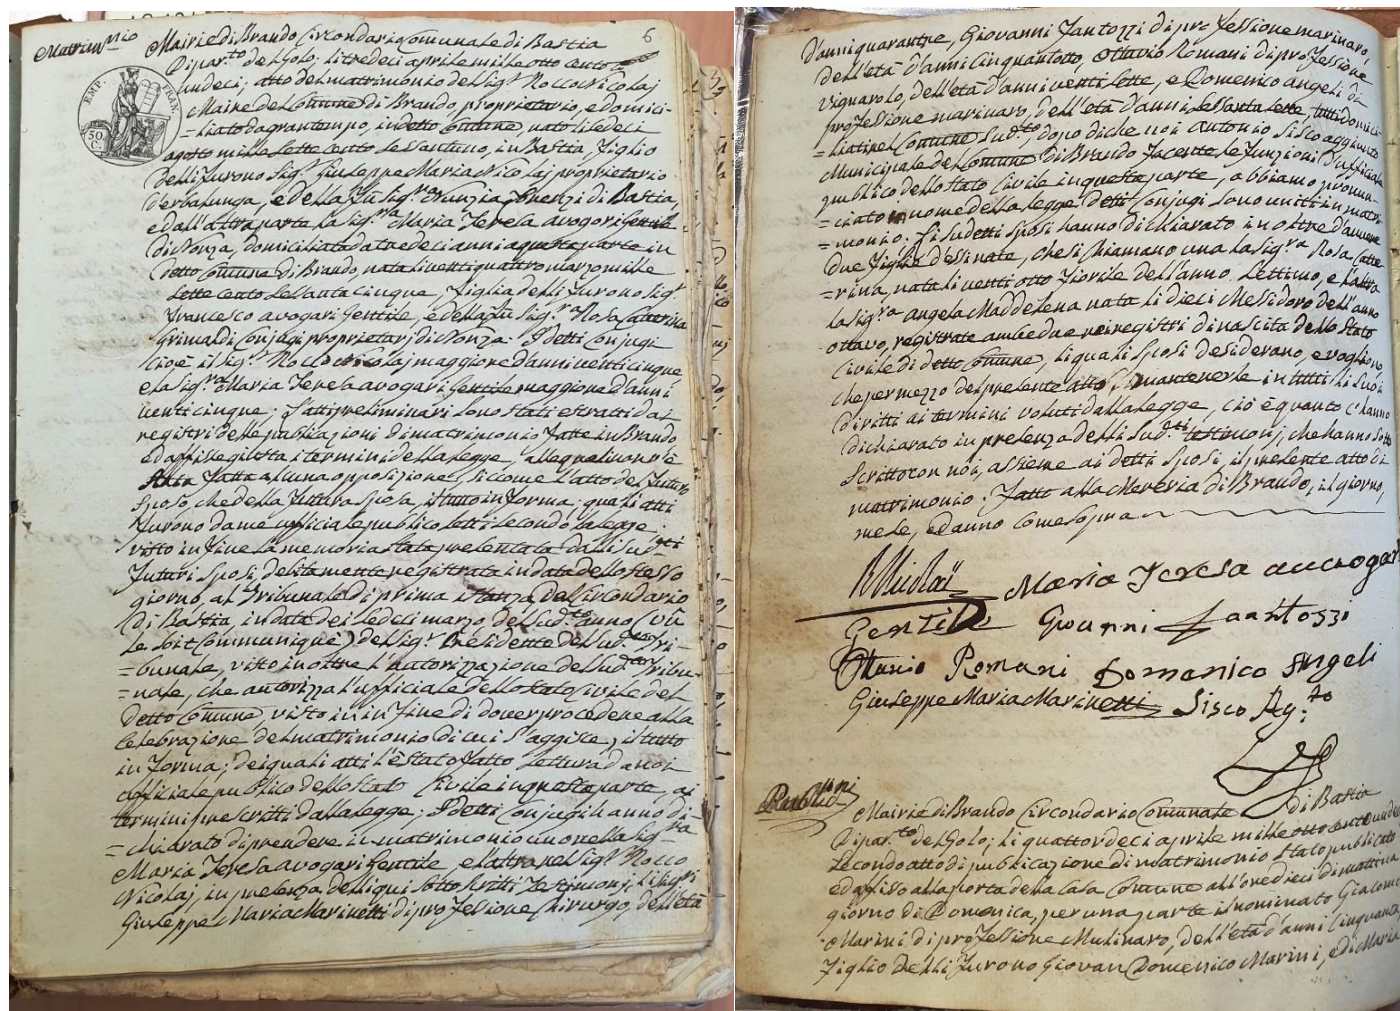 Matrimonio
6
Mairie di Brando Circondario Comunale di Bastia
Dipar.to del Golo; li tredeci aprile mille otto cento
undeci; atto del matrimonio del Sig.r Rocco Nicolaj
Maire del Comune di Brando, proprietario, e domici-
=liato da gran tempo, in detto Comune, nato li sedeci
agosto mille sette cento sessantuno, in Bastia, figlio
delli furono Sig.r Giuseppe Maria Nicolaj proprietario
d'erbalunga, e della fu Sig.ra Nunzia Lorenzi di Bastia,
e dall'altra parte la Sig.ra Maria Teresa avogari Gentile
di Nonza, domiciliata da sedeci anni a questa parte in
detto Comune di Brando, nata li venti quattro marzo mille
sette cento sessanta cinque, figlia delli furono Sig.r
Francesco avogari Gentile, e della fu Sig.ra Rosa Catterina
Grimaldi Conjugi proprietarj di Nonza. I detti Conjugi
cioè il Sig.r Rocco Nicolaj maggiore d'anni venti cinque
e la Sig.ra Maria Teresa avogari Gentile maggiore d'anni
venti cinque; Gl'atti preliminari sono stati estratti dai
registri delle publicazioni di matrimonio fatte in Brando
ed affissi giusta i termini della legge, alle quali non v'è
stata fatta alcuna opposizione, siccome l'atto del futuro
sposo, che della futura sposa, il tutto in forma; quali atti
furono da me ufficiale publico letti secondo la legge;
visto in fine la memoria stata presentata dalli sud.tti
futuri sposi debitamente registrata in data dello stesso
giorno, al Tribunale di prima istanza del Circondario
di Bastia, in data dei sedeci marzo del sud.to anno (vû
le soit Communiqué) del Sig.r Presidente del sud.to Tri-
=bunale, visto in oltre l'autorizzazione del sud.to Tribu-
=nale, che autorizza l'ufficiale dello stato civile del
detto Comune, visto in in fine di dover procedere alla
celebrazione del matrimonio di cui s'aggisce, il tutto
in forma; dei quali atti l'è stato fatto lettura da noi
ufficiale publico dello stato Civile in questa parte, ai
termini prescritti dalla legge; I detti Conjugi hanno di-
=chiarato di prendere in matrimonio uno nella Sig.ra
Maria Teresa avogari Gentile, e l'altra nel Sig.r Rocco
Nicolaj, in presenza delli qui sotto scritti Testimonj, li Signri
Giuseppe Maria Marinetti di professione Chirurgo, dell'età
d'anni quarantre, Giovanni Fantozzi di professione marinaro,
dell'età d'anni cinquantotto, Ottavio Romani di professione
vignarolo, dell'età d'anni venti sette, e Domenico angeli di
professione marinaro, dell'età d'anni sessanta sette, tutti domici-
=liati nel Comune sud.to, dopo di che noi Antonio Sisco aggiunto
Municipale del Comune di Brando facente le funzioni d'ufficiale
publico dello stato Civile in questa parte, abbiamo pronun-
=ciato in nome della legge. Detti Conjugi sono uniti in matri-
=monio. Li sudetti sposi hanno dichiarato in oltre d'avere
due figlie d'essi nate, che si chiamano una la Sig.ra Rosa Catte
=rina, nata li venti otto fiorile dell'anno settimo, e l'altra
la Sig.ra angela Maddelena nata li dieci Messidoro dell'anno
ottavo, registrate ambedue nei registri di nascita dello stato
civile di detto Comune, li quali sposi desiderano, e vogliono,
che per mezzo del presente atto mantenerle in tutti li suoi
diritti ai termini voluti dalla legge, ciò è quanto c'hanno
dichiarato in presenza delli sud.tti testimonj, che hanno sotto
scritto con noi, assieme ai detti sposi, il presente atto di
matrimonio. Fatto alla Maireria di Brando, il giorno,
mese, ed anno come sopra
RNicolaÿ Maria Teresa avvogari
Gentile Giovanni Fanttozzi
Ottavio Romani Domenico Angeli
Giuseppe Maria Marinetti Sisco Ag.to
Publicni
Mairie di Brando Circondario Comunale di Bastia
Dipar.to del Golo; li quattordeci aprile mille otto cento undeci
secondo atto di publicazione di matrimonio stato publicato
ed affisso alla porta della casa Comune all'ore dieci di mattina
giorno di Domenica, per una parte il nominato Giacomo
Marini di professione Mulinaro, dell'età d'anni cinquanta,
figlio delli furono Giovan Domenico Marini, e di Maria